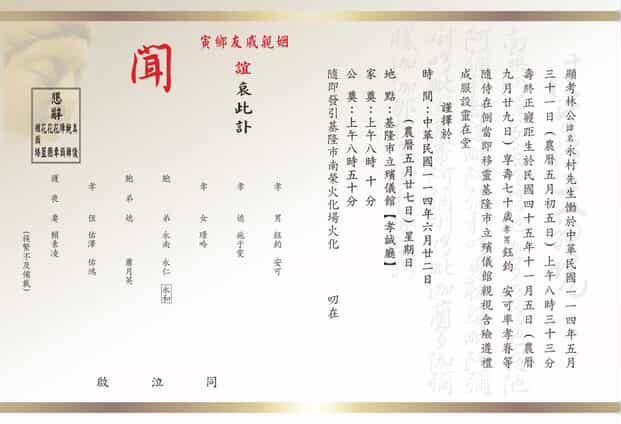 顯考林公諱名永村先生慟於中華民國一一四年五月
三十一日（農曆五月初五日）上午八時三十三分
壽終正寢距生於民國四十五年十一月五日（農曆
九月廿九日）享壽七十歲孝男鈺鈞 安可率孝眷等
隨侍在側當即移靈基隆市立殯儀館親視含殮遵禮
成服設靈在堂
謹擇於
時 間：中華民國一一四年六月廿二日
（農曆五月廿七日）星期日
地 點：基隆市立殯儀館【孝誠廳】
家 奠：上午八時 十分
公 奠：上午八時五十分
隨即發引基隆市南榮火化場火化
叨在
姻親戚友鄉寅
誼 哀此訃
聞
懇辭
孝 男 鈺鈞 安可
孝 媳 施于雯
孝 女
胞 弟 永南 永仁 永和
胞弟媳 蕭月英
孝 侄 佑澤 佑鴻
護 喪 妻 賴素凌
（族繁不及備載）
同 泣 啟